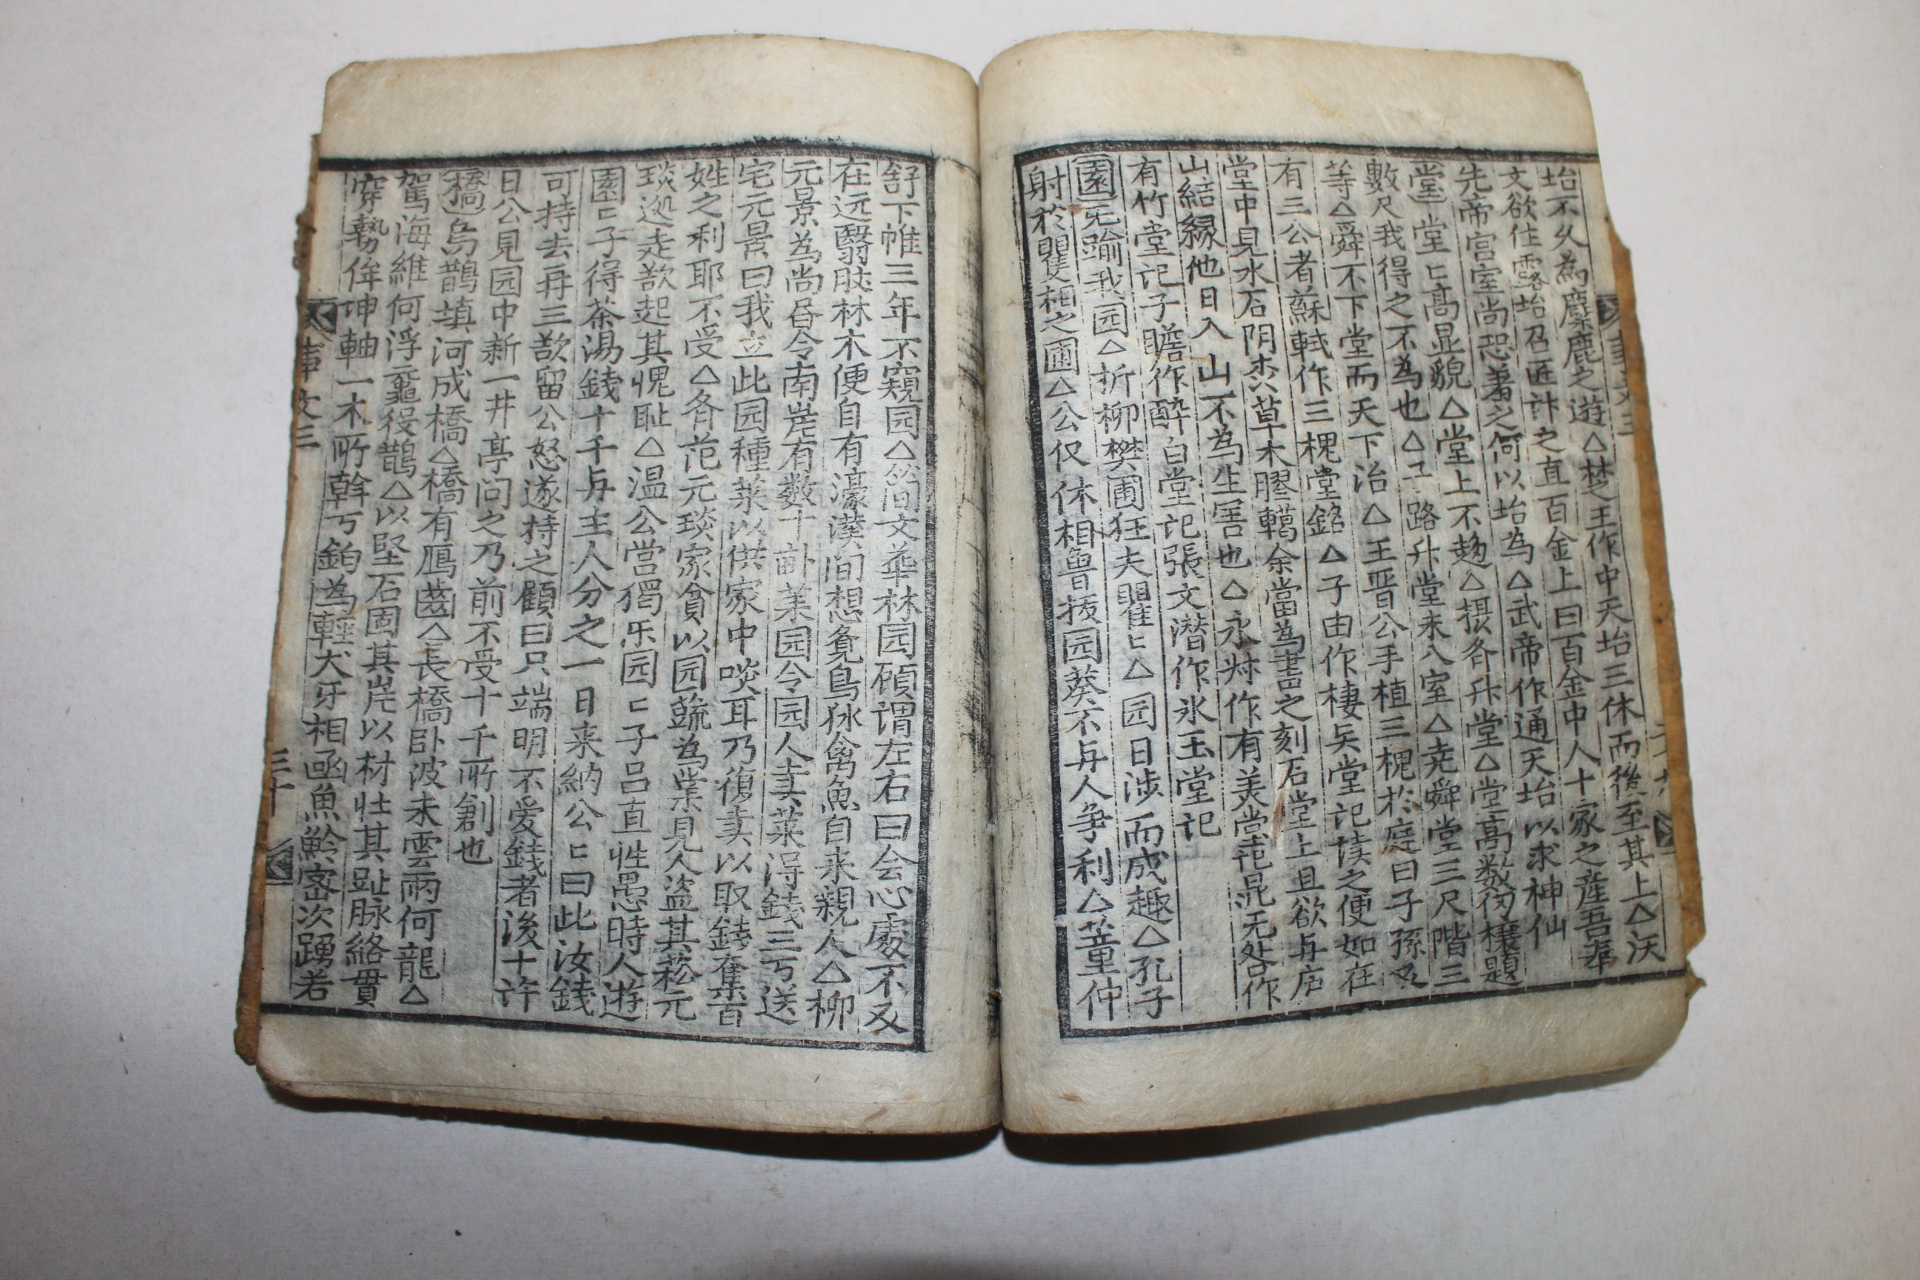 坮不久為麋鹿之遊△楚王作中天坮三休而後至其上△汰
文欲作露坮召匠計之直百金上曰百金中人十家之産吾奉
先帝宮室尚恐羞之何以坮為△武帝作通天坮以求神仙
堂 堂匕髙显貌△堂上不趨△摂斉升堂△堂髙数仞榱題
數尺我得之不為也△子路升堂未入室△尭舜堂三尺階三
等△舜不下堂而天下治△王晋公手植三槐於庭曰子孫必
有三公者蘇軾作三槐堂銘△子由作棲矣堂記读之便如在
堂中見水石阴森草木膠轕余當為書之刻石堂上且欲与庐
山結縁他日入山不為生客也△永叔作有美堂記晁无咎作
有竹堂記子瞻作醉白堂記張文潜作氷玉堂記
園 无踰我园△折柳樊圃狂夫瞿匕△园日涉而成趣△孔子
射於矍相之圃△公仪休相魯拔园葵不与人争利△董仲
舒下帷三年不窺园△简文華林园顾谓左右曰会心處不必
在远翳肷林木便自有濠濮间想覔鳥狖禽魚自来親人△柳
元景為尚昼令南岸有数十畝菜园令园人卖菜得錢三万送
宅元景曰我立此园種菜以供家中啖耳乃復卖以取錢奪百
姓之利耶不受△各范元琰家貧以园蔬為業見人盗其菘元
琰遽走欲起其愧耻△温公當獨乐园匕子吕直性愚時人遊
園匕子得茶湯錢十千与主人分之一日来納公匕曰此汝錢
可持去再三欲留公怒遂持之顧曰只端明不爱錢者後十许
日公見园中新一井亭问之乃前不受十千所創也
橋 烏鵲填河成橋△橋有鴈齒△長橋卧波未雲雨何龍△
駕海維何浮黿役鵲△以堅石固其岸以材壮其趾脉絡貫
穿勢侔坤軸一木所幹万鈞為輕犬牙相凾魚鱗密次踴若
事文三
三十